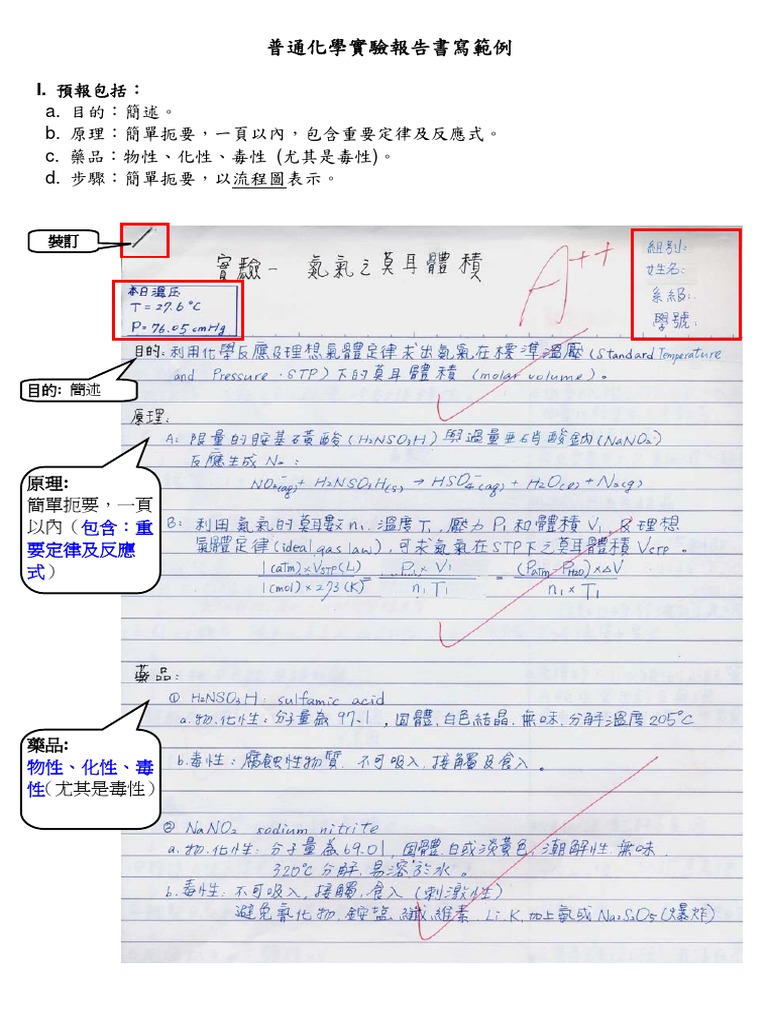 普通化學實驗報告書寫範例
I. 預報包括：
a. 目的：簡述。
b. 原理：簡單扼要，一頁以內，包含重要定律及反應式。
c. 藥品：物性、化性、毒性 (尤其是毒性)。
d. 步驟：簡單扼要，以流程圖表示。
裝訂
實驗一 氮氣之莫耳體積
A++
組別：
姓名：
系級：
學號：
本日溫压
T = 27.6°C
P = 76.05 cmHg
目的：利用化學反應及理想氣體定律求出氮氣在標準溫壓(Standard Temperature
and Pressure, STP)下的莫耳體積 (molar volume)。
目的: 簡述
原理：
A：限量的胺基磺酸(H2NSO3H)與過量亞硝酸鈉(NaNO2)
反應生成N2：
NO2⁻(aq) + H2NSO3H(s) → HSO4⁻(aq) + H2O(l) + N2(g)
原理:
簡單扼要，一頁
以內（包含：重
要定律及反應
式）
B：利用氮氣的莫耳數n1、溫度T1、壓力P1和體積V1，及理想
氣體定律(ideal gas law)，可求氮氣在STP下之莫耳體積VSTP。
1(atm)×VSTP(L) / 1(mol)×273(K) = P1×V1 / n1T1 = (Patm−PH2O)×ΔV / n1×T1
藥品：
① H2NSO3H: sulfamic acid
a.物.化性：分子量為97.1，固體.白色結晶.無味.分解溫度205°C
b.毒性：腐蝕性物質.不可吸入,接觸及食入。
藥品:
物性、化性、毒
性(尤其是毒性)
② NaNO2 sodium nitrite
a.物.化性：分子量為69.01，固體.白或淡黃色,潮解性.無味.
320°C分解,易溶於水。
b.毒性：不可吸入,接觸,食入(刺激性)
避免氰化物,銨塩,纖維素.Li.K,加上氨成Na2S2O5(爆炸)